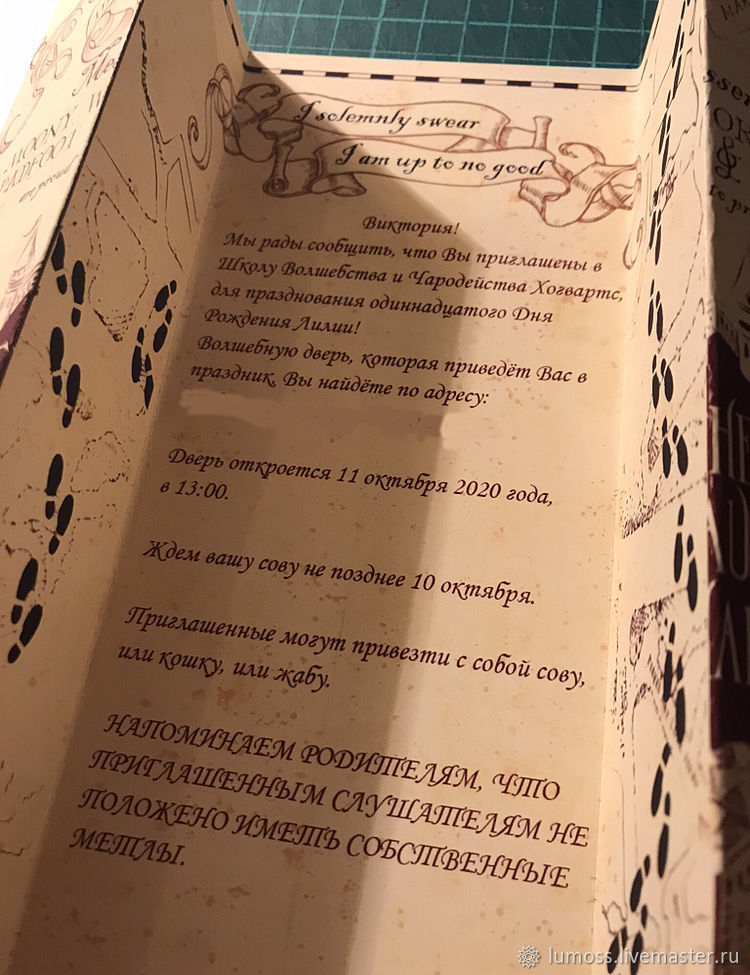 I solemnly swear
I am up to no good
Виктория!
Мы рады сообщить, что Вы приглашены в
Школу Волшебства и Чародейства Хогвартс,
для празднования одиннадцатого Дня
Рождения Лилии!
Волшебную дверь, которая приведёт Вас в
праздник, Вы найдёте по адресу:
Дверь откроется 11 октября 2020 года,
в 13:00.
Ждем вашу сову не позднее 10 октября.
Приглашенные могут привезти с собой сову,
или кошку, или жабу.
НАПОМИНАЕМ РОДИТЕЛЯМ, ЧТО
ПРИГЛАШЕННЫМ СЛУШАТЕЛЯМ НЕ
ПОЛОЖЕНО ИМЕТЬ СОБСТВЕННЫЕ
МЕТЛЫ.
MOONY
lumoss.livemaster.ru